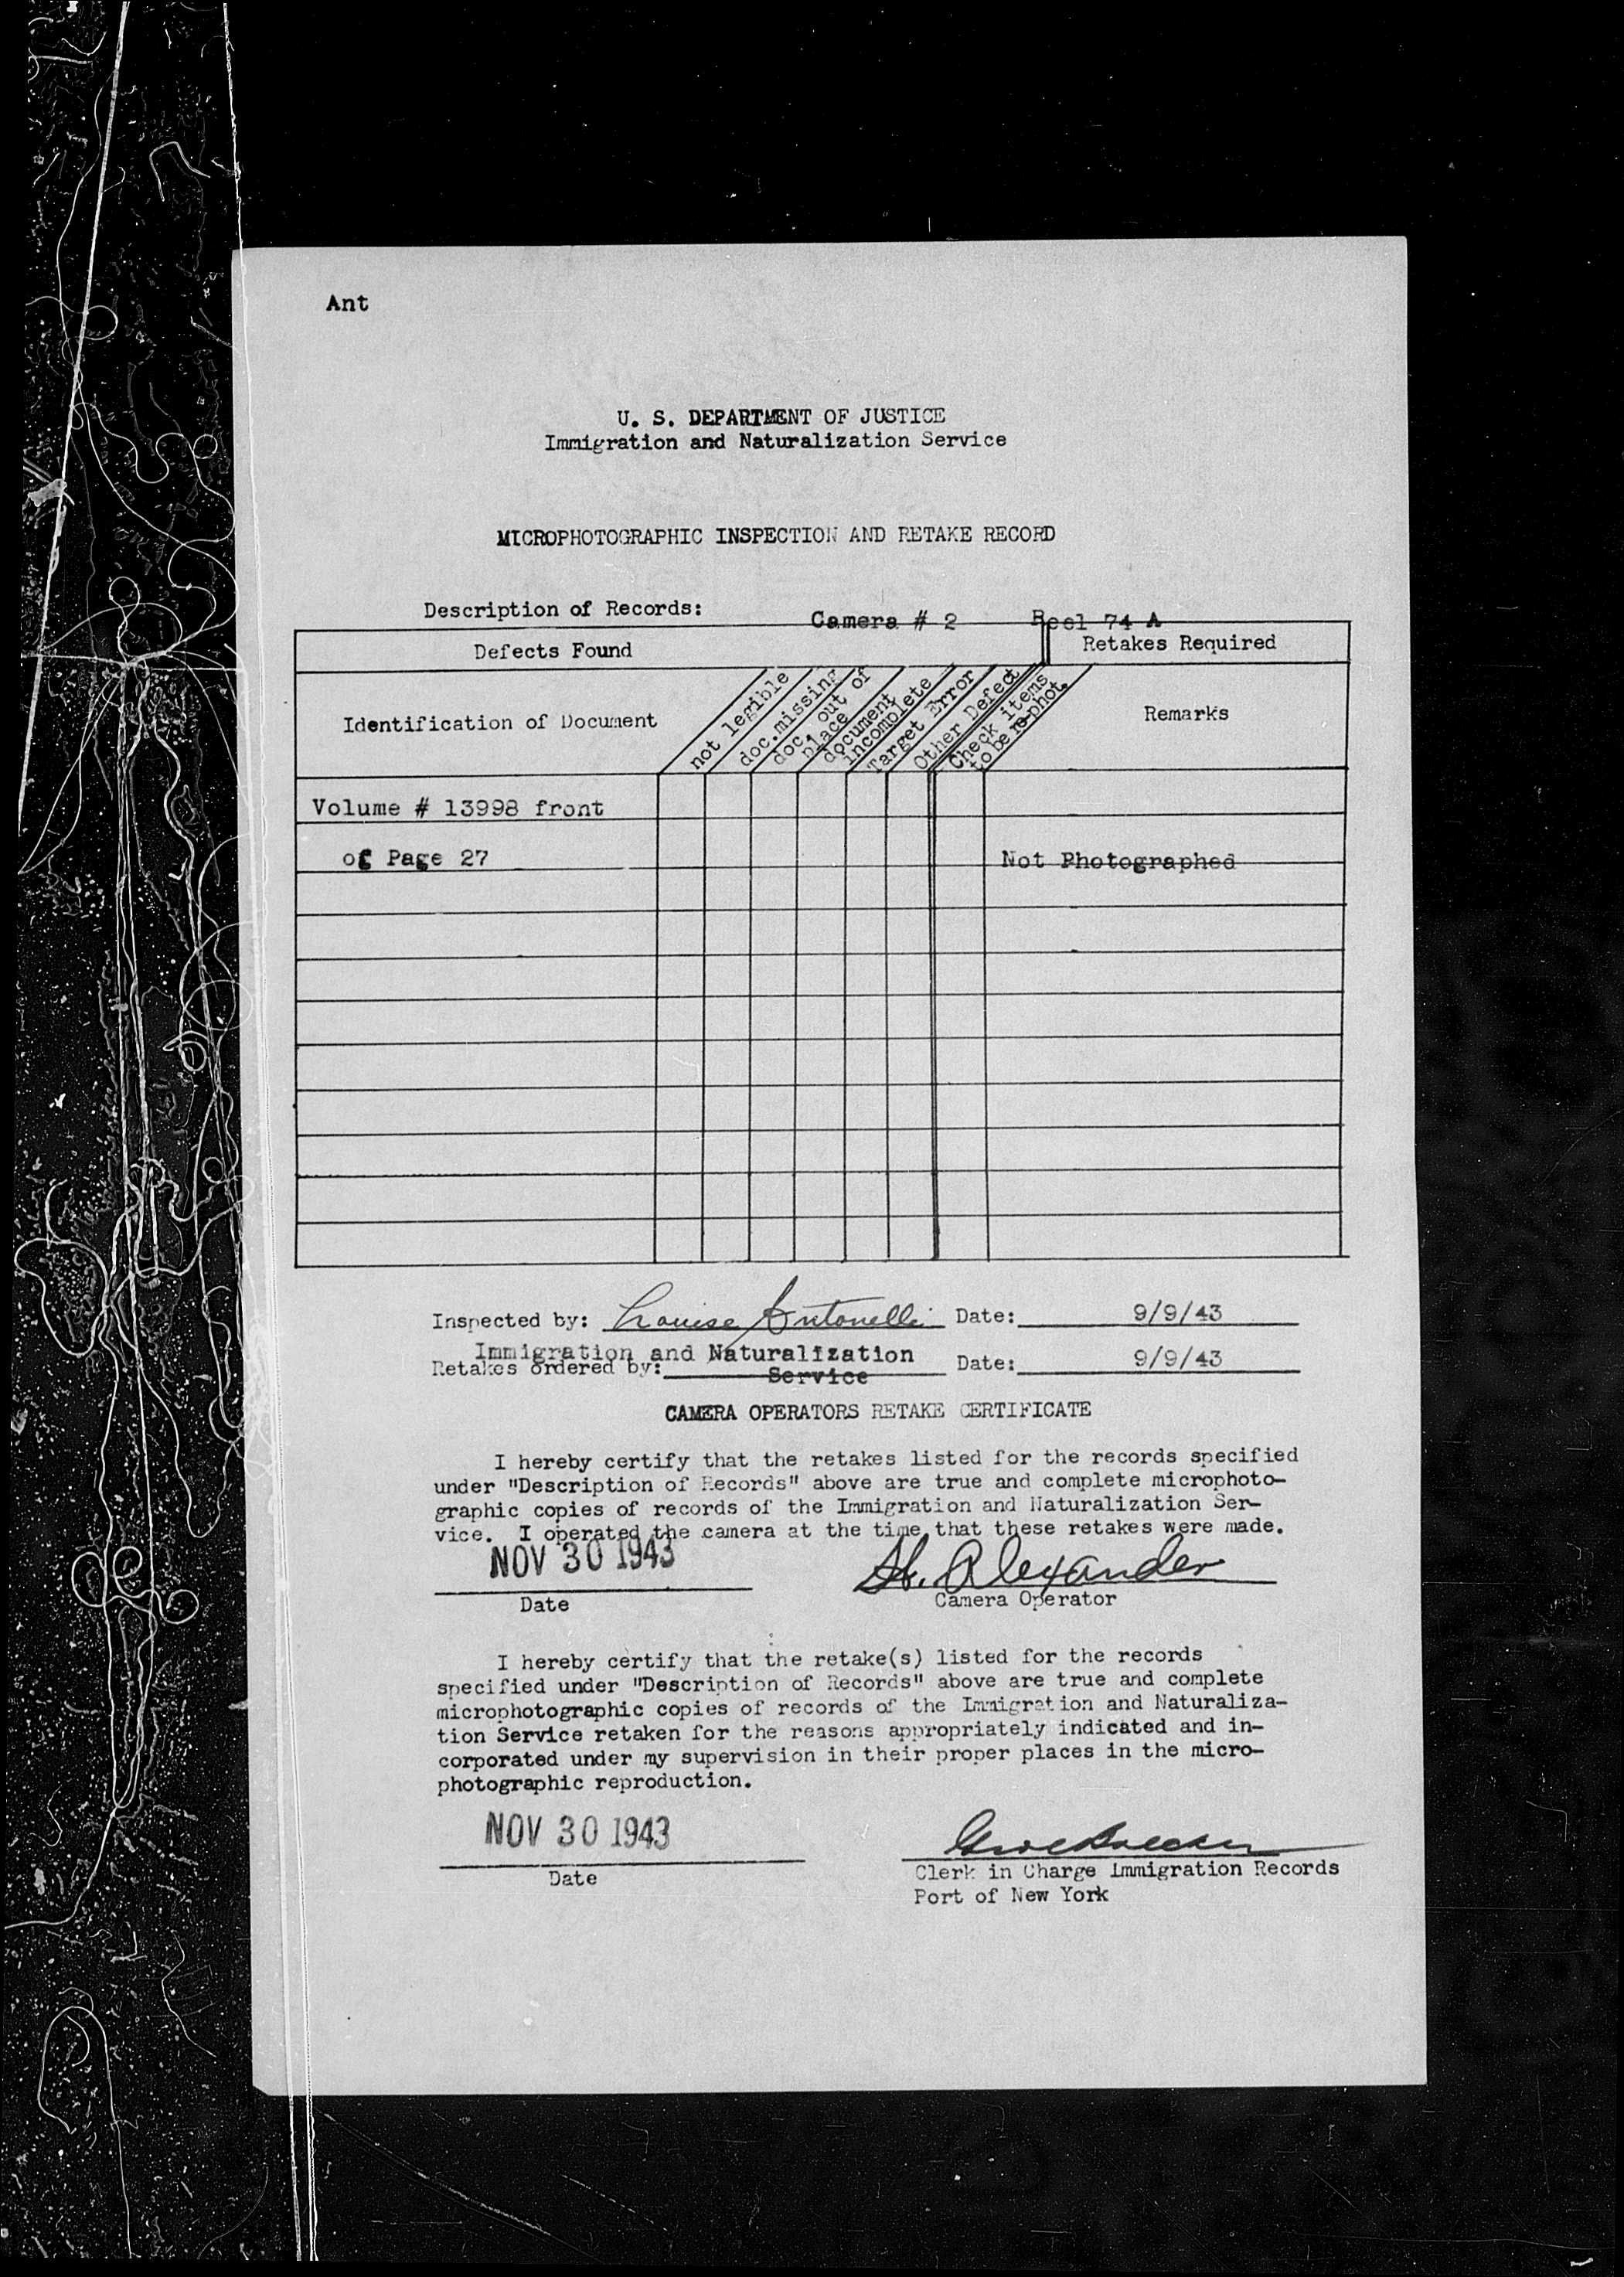 Ant
U. S. DEPARTMENT OF JUSTICE
Immigration and Naturalization Service
MICROPHOTOGRAPHIC INSPECTION AND RETAKE RECORD
Description of Records: Camera # 2 Reel 74 A
Defects Found Retakes Required
Identification of Document
not legible
doc.missing
doc. out of
place
document
incomplete
Target Error
Other Defect
Check items
to be re-phot.
Remarks
Volume # 13998 front
of Page 27 Not Photographed
Inspected by: Louise Antonelli Date: 9/9/43
Immigration and Naturalization
Retakes ordered by: Service Date: 9/9/43
CAMERA OPERATORS RETAKE CERTIFICATE
I hereby certify that the retakes listed for the records specified
under "Description of Records" above are true and complete microphoto-
graphic copies of records of the Immigration and Naturalization Ser-
vice. I operated the camera at the time that these retakes were made.
NOV 30 1943 Alexander
Date Camera Operator
I hereby certify that the retake(s) listed for the records
specified under "Description of Records" above are true and complete
microphotographic copies of records of the Immigration and Naturaliza-
tion Service retaken for the reasons appropriately indicated and in-
corporated under my supervision in their proper places in the micro-
photographic reproduction.
NOV 30 1943
Date
Clerk in Charge Immigration Records
Port of New York